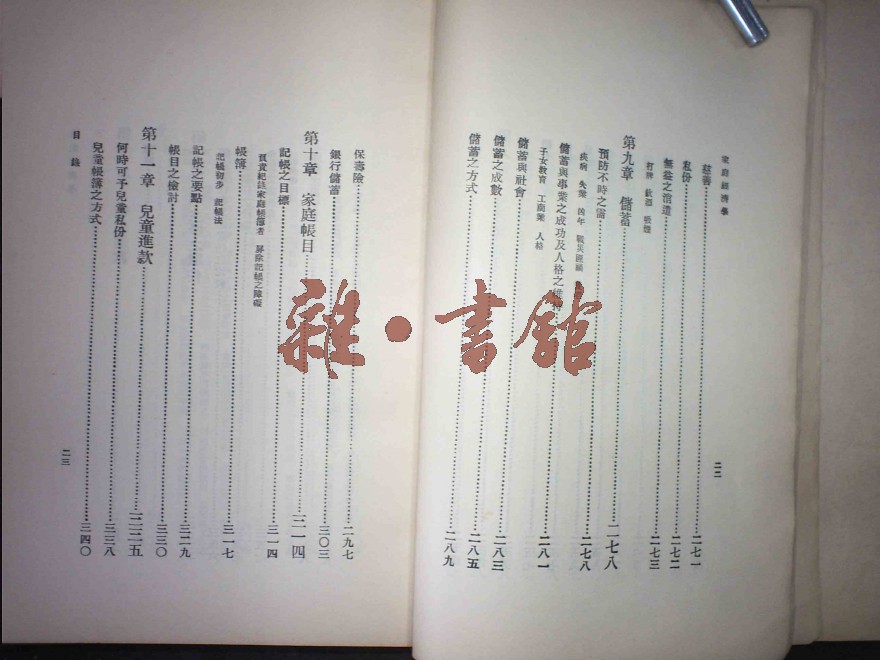 家庭經濟學
慈善 二七一
私份 二七二
無益之消遣 二七三
打牌 飲酒 吸煙
第九章 儲蓄 二七八
預防不時之需 二七八
疾病 失業 凶年 戰災匪禍
儲蓄與事業之成功及人格之 二八一
子女教育 工商業 人格
儲蓄與社會 二八三
儲蓄之成數 二八五
儲蓄之方式 二八九
二二
保壽險 二九七
銀行儲蓄 三〇三
第十章 家庭帳目 三一四
記帳之目標 三一四
家庭帳簿者 屏除記帳之障礙
帳簿 三一七
記帳初步 記帳法
記帳之要點 三二九
帳目之檢討 三三〇
第十一章 兒童進款
何時可予兒童私份 三三八
兒童帳簿之方式 三四〇
目錄
二三
雜·書館